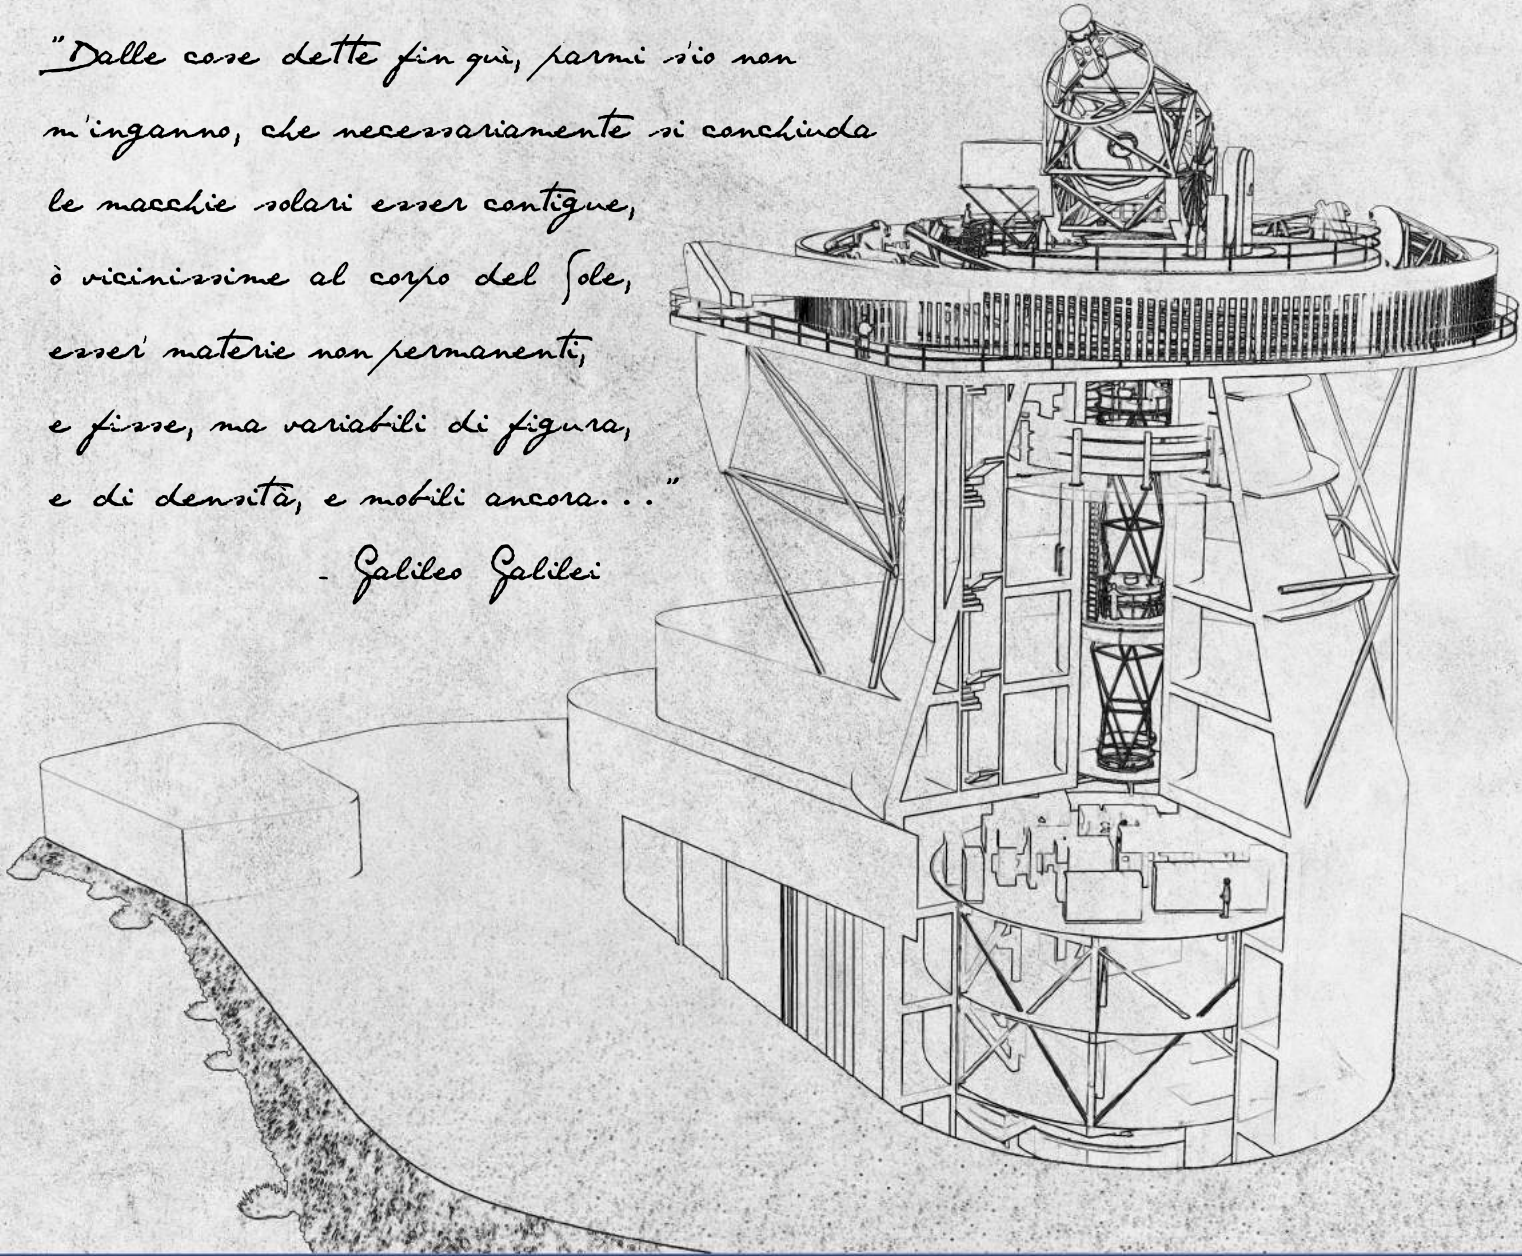 "Dalle cose dette fin quì, parmi s'io non
m'inganno, che necessariamente si conchiuda
le macchie solari esser contigue,
ò vicinissime al corpo del Sole,
esser' materie non permanenti,
e fisse, ma variabili di figura,
e di densità, e mobili ancora. . ."
- Galileo Galilei